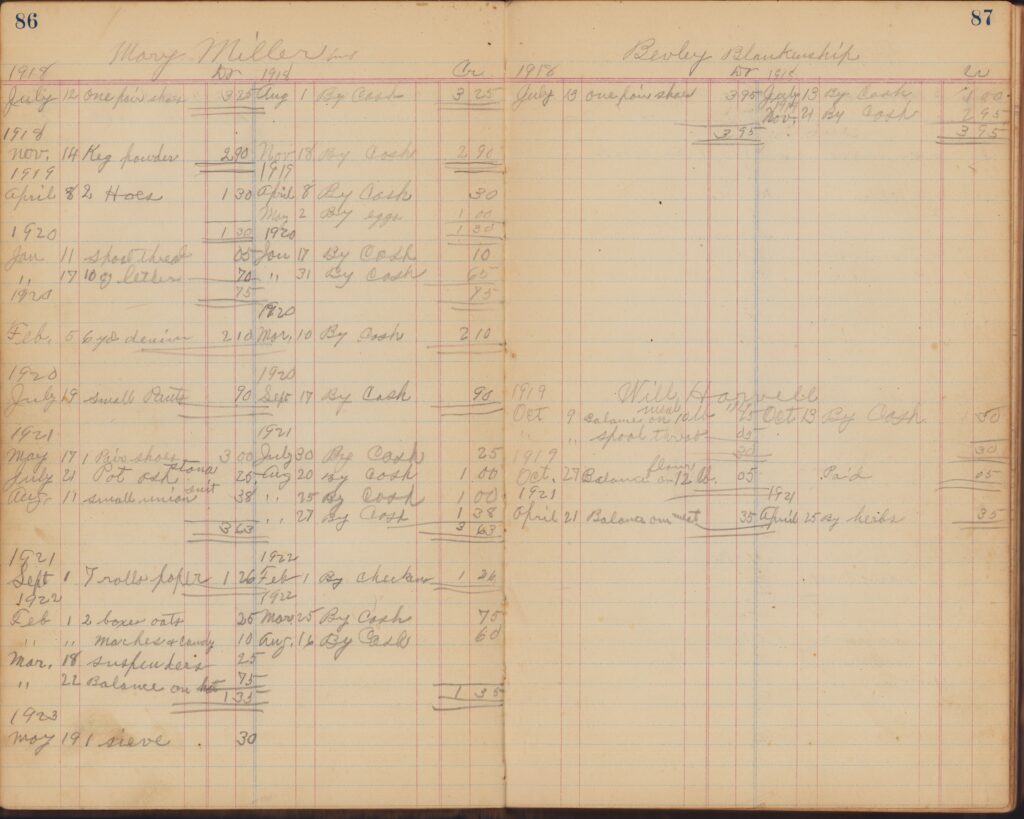 86
Mary Miller
1918 Dr 1918 Cr
July 12 one pair shoes 3 25 Aug 1 By Cash 3 25
1918
Nov. 14 Keg powder 2 90 Nov 18 By Cash 2 90
1919 1919
April 8 2 Hoes 1 30 April 8 By Cash 30
May 2 By eggs 1 00
1920 1 30 1920 1 30
Jan 11 spool thred 05 Jan 17 By Cash 10
" 17 10 of lether 70 " 31 By Cash 65
1920 75 75
1920
Feb. 5 6 yds denim 2 10 Mar. 10 By Cash 2 10
1920 1920
July 9 small Pants 90 Sept 17 By Cash 90
1921 1921
May 17 1 Pair shoes 3 00 July 30 By Cash 25
July 21 Pot ash 25 Aug 20 By Cash 1 00
Aug. 11 small union suit 38 " 25 By Cash 1 00
" 27 By Cash 1 38
3 63 3 63
1921 1922
Sept 1 7 rolls paper 1 26 Feb 1 By chickens 1 26
1922 1922
Feb 1 2 boxes oats 25 Mar 25 By Cash 75
" " maches & candy 10 Aug. 16 By Cash 60
Mar. 18 suspenders 25
" 22 Balance on 75
1 35 1 35
1923
May 19 1 sieve 30
87
Bevley Blankenship
1918 Dr 1918 Cr
July 13 one pair shoes 3 95 July 13 By Cash 1 00
1919
Nov. 21 By Cash 2 95
3 95 3 95
1919 Will Harvell
Oct. 9 Balance on 10 lb meal 25 Oct 13 By Cash 30
" " spool thred 05
1919 30 30
Oct. 27 Balance on 12 lb. flour 05 Pa'd 05
1921 1921
April 21 Balance on meat 35 April 25 By herbs 35